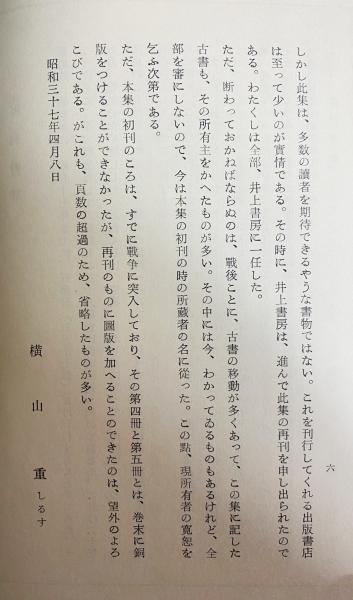 六
しかし此集は、多数の讀者を期待できるやうな書物ではない。これを刊行してくれる出版書店
は至って少いのが實情である。その時に、井上書房は、進んで此集の再刊を申し出られたので
ある。わたくしは全部、井上書房に一任した。
ただ、断わっておかねばならぬのは、戰後ことに、古書の移動が多くあって、この集に記した
古書も、その所有主をかへたものが多い。その中には今、わかってゐるものもあるけれど、全
部を審にしないので、今は本集の初刊の時の所藏者の名に從った。この點、現所有者の寬恕を
乞ふ次第である。
ただ、本集の初刊のころは、すでに戰爭に突入しており、その第四冊と第五冊とは、巻末に銅
版をつけることができなかったが、再刊のものに圖版を加へることのできたのは、望外のよろ
こびである。がこれも、頁数の超過のため、省略したものが多い。
昭和三十七年四月八日
横山重しるす